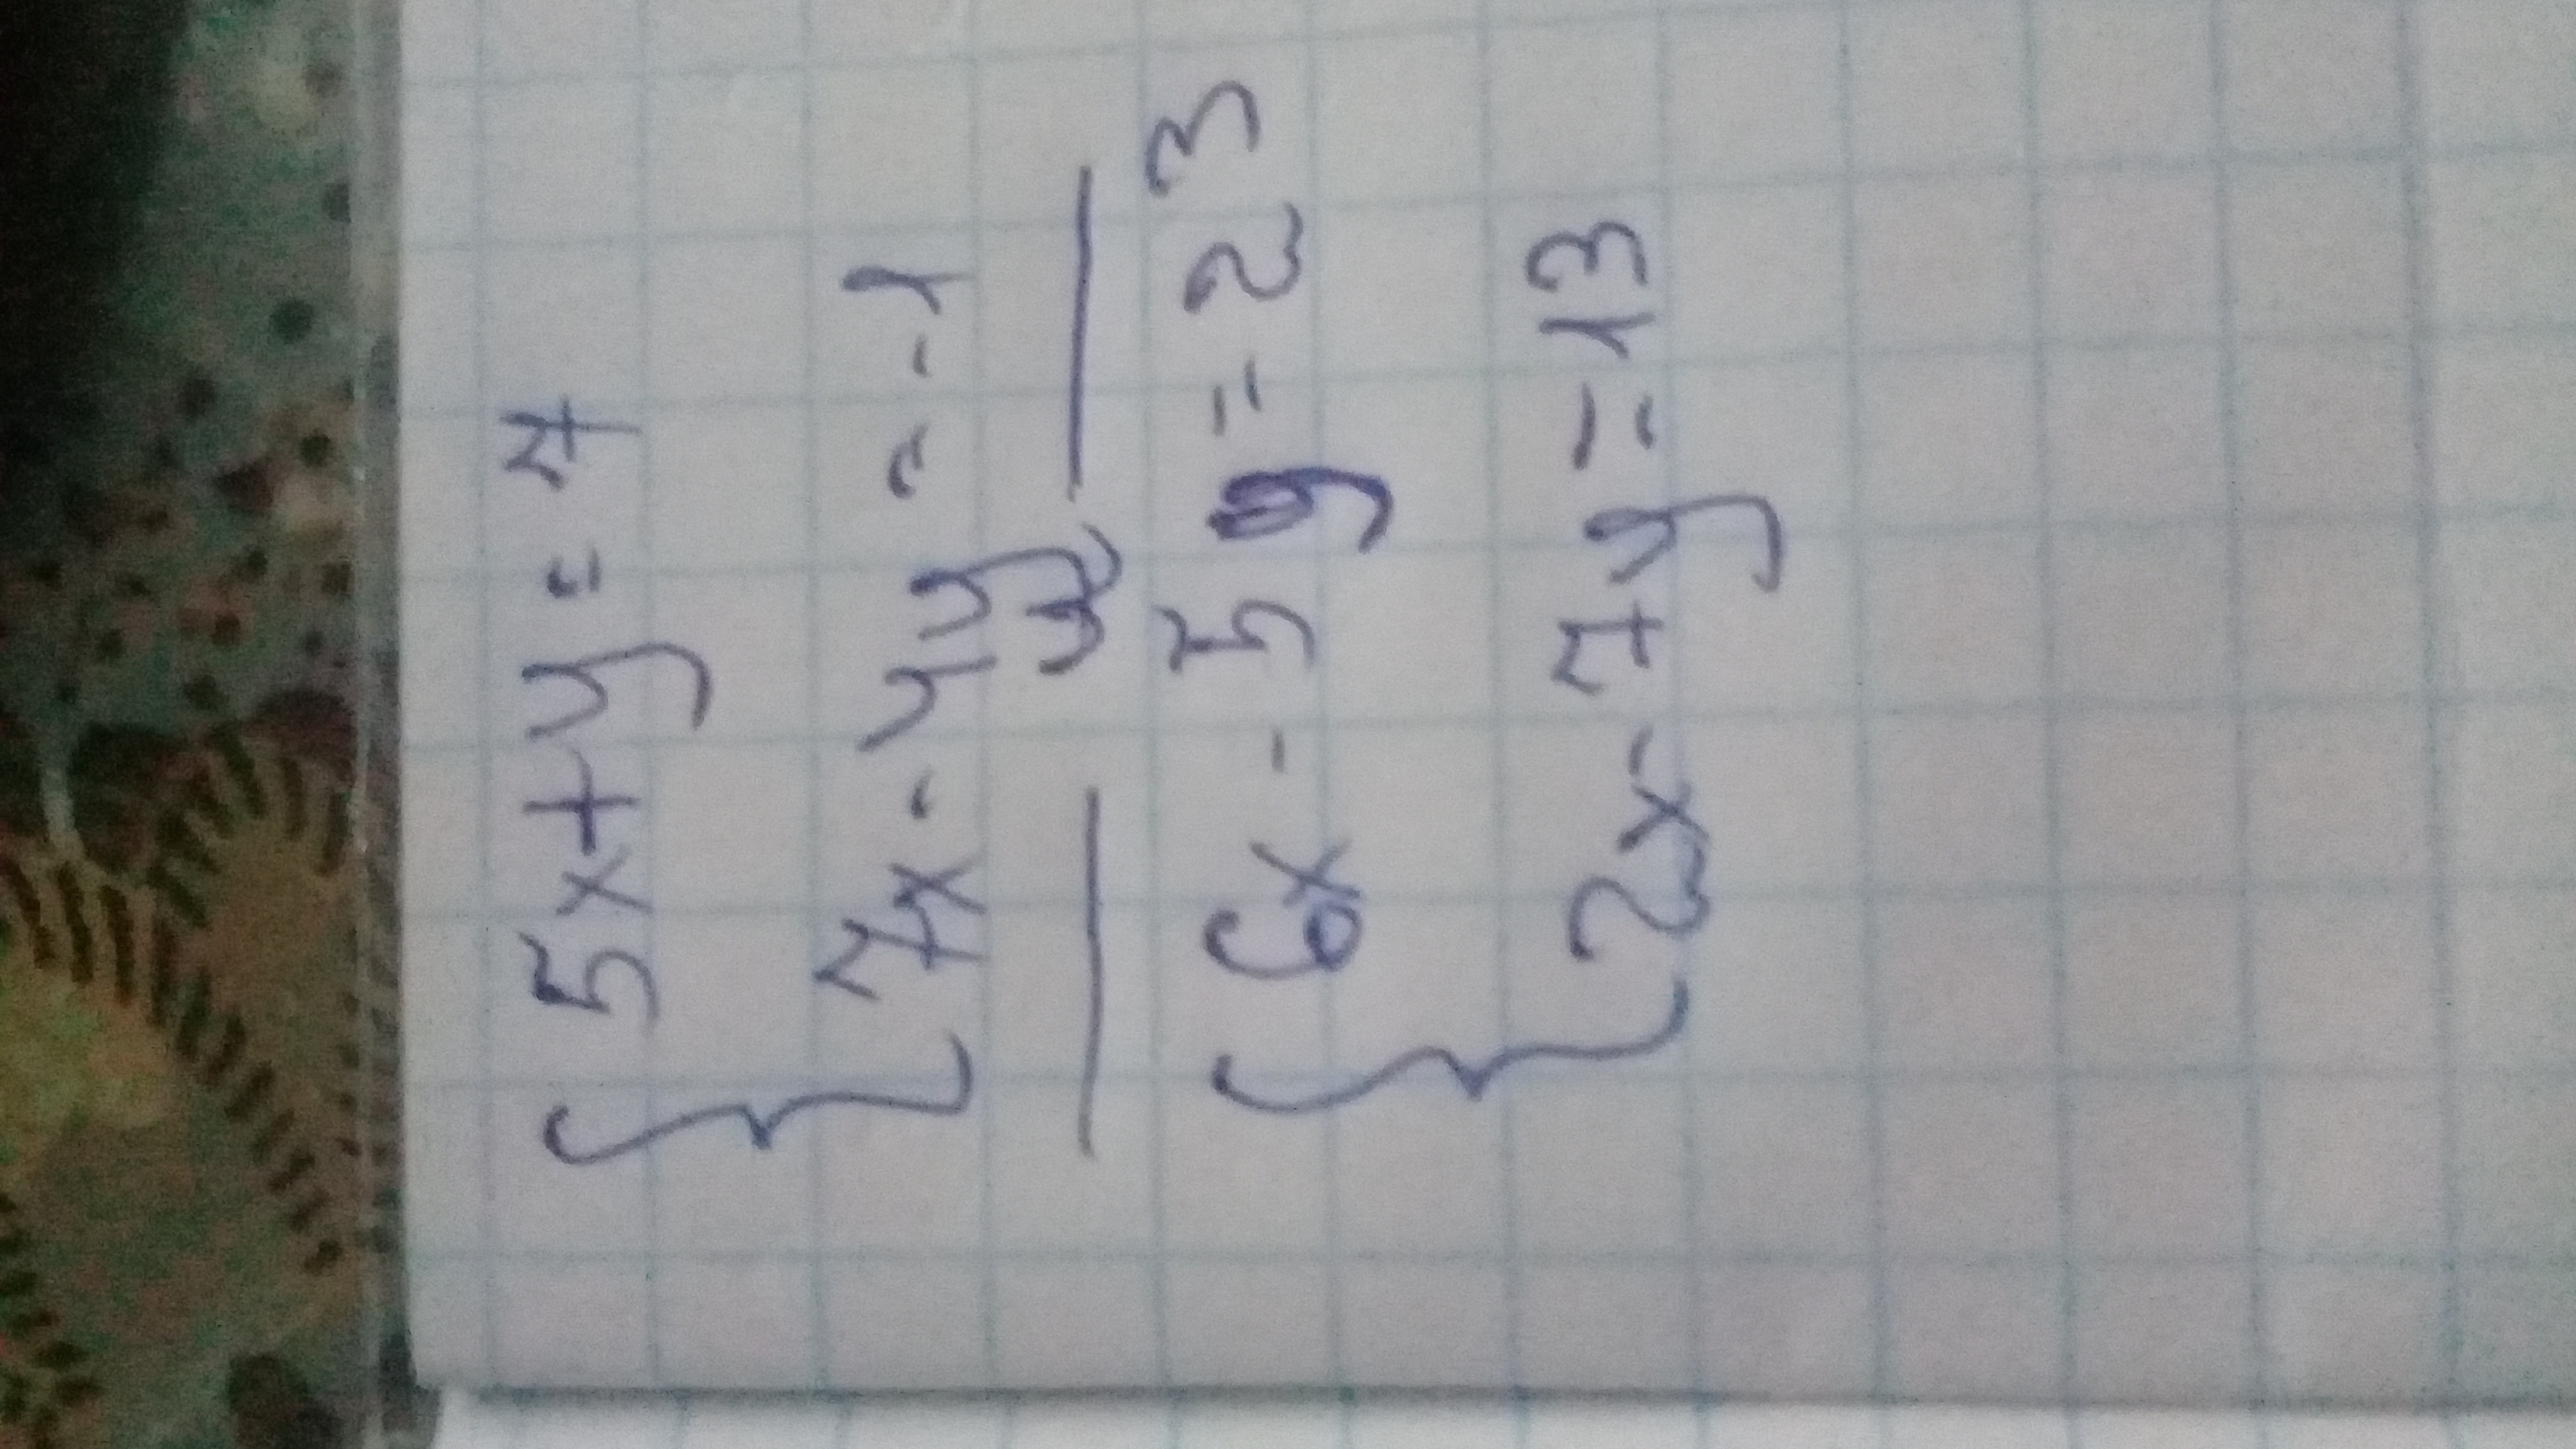 { 5x+y=7
7x-4y=-1
{ 6x-5y=23
2x-7y=13